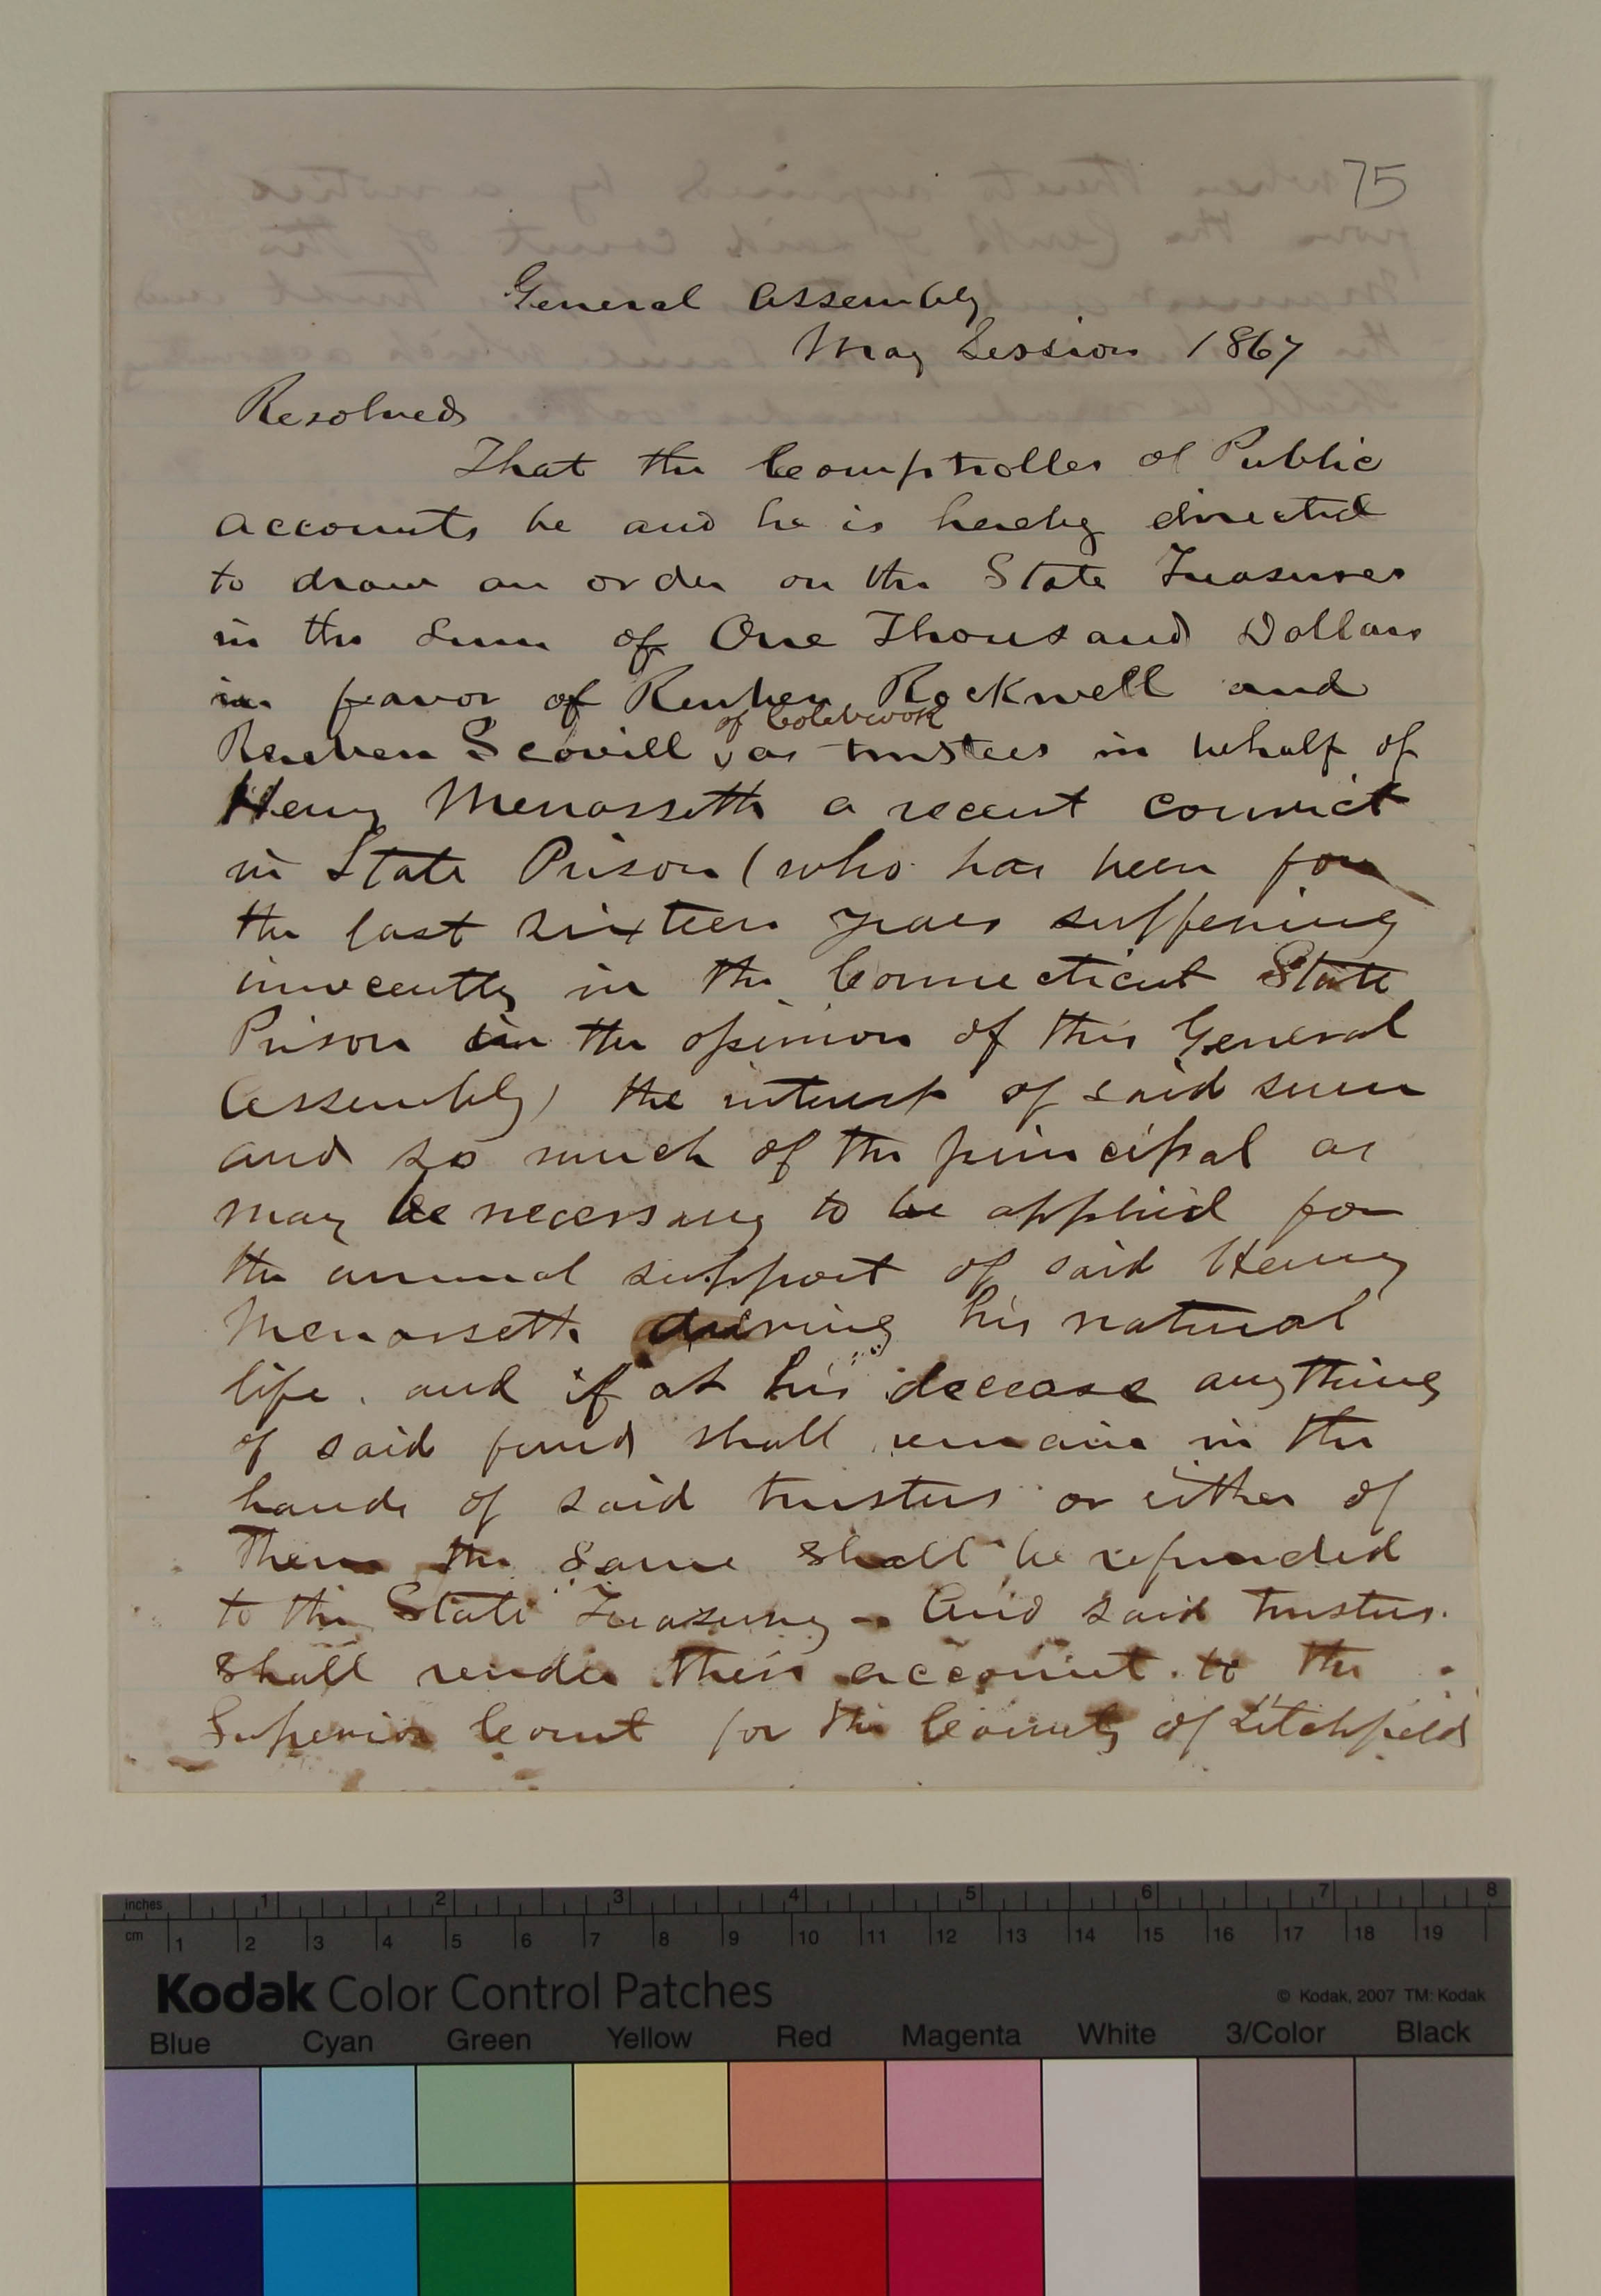 75
General Assembly
May Session 1867
Resolved
That the Comptroller of Public
accounts be and he is hereby directed
to draw an order on the State Treasurer
in the sum of One Thousand Dollars
in favor of Reuben Rockwell and
of Colebrook
Reuben Scovill as trustees in behalf of
Henry Menassett a recent convict
in State Prison (who has been for
the last sixteen years suffering
innocently in the Connecticut State
Prison in the opinion of this General
Assembly) the interest of said sum
and so much of the principal as
may be necessary to be applied for
the annual support of said Henry
Menassett during his natural
life, and if at his decease anything
of said fund shall remain in the
hands of said trustees or either of
them the same shall be refunded
to the State Treasury - And said trustees
shall render their account to the
Superior Court for the County of Litchfield
inches 1 2 3 4 5 6 7 8
cm 1 2 3 4 5 6 7 8 9 10 11 12 13 14 15 16 17 18 19
Kodak Color Control Patches
© Kodak, 2007 TM: Kodak
Blue Cyan Green Yellow Red Magenta White 3/Color Black